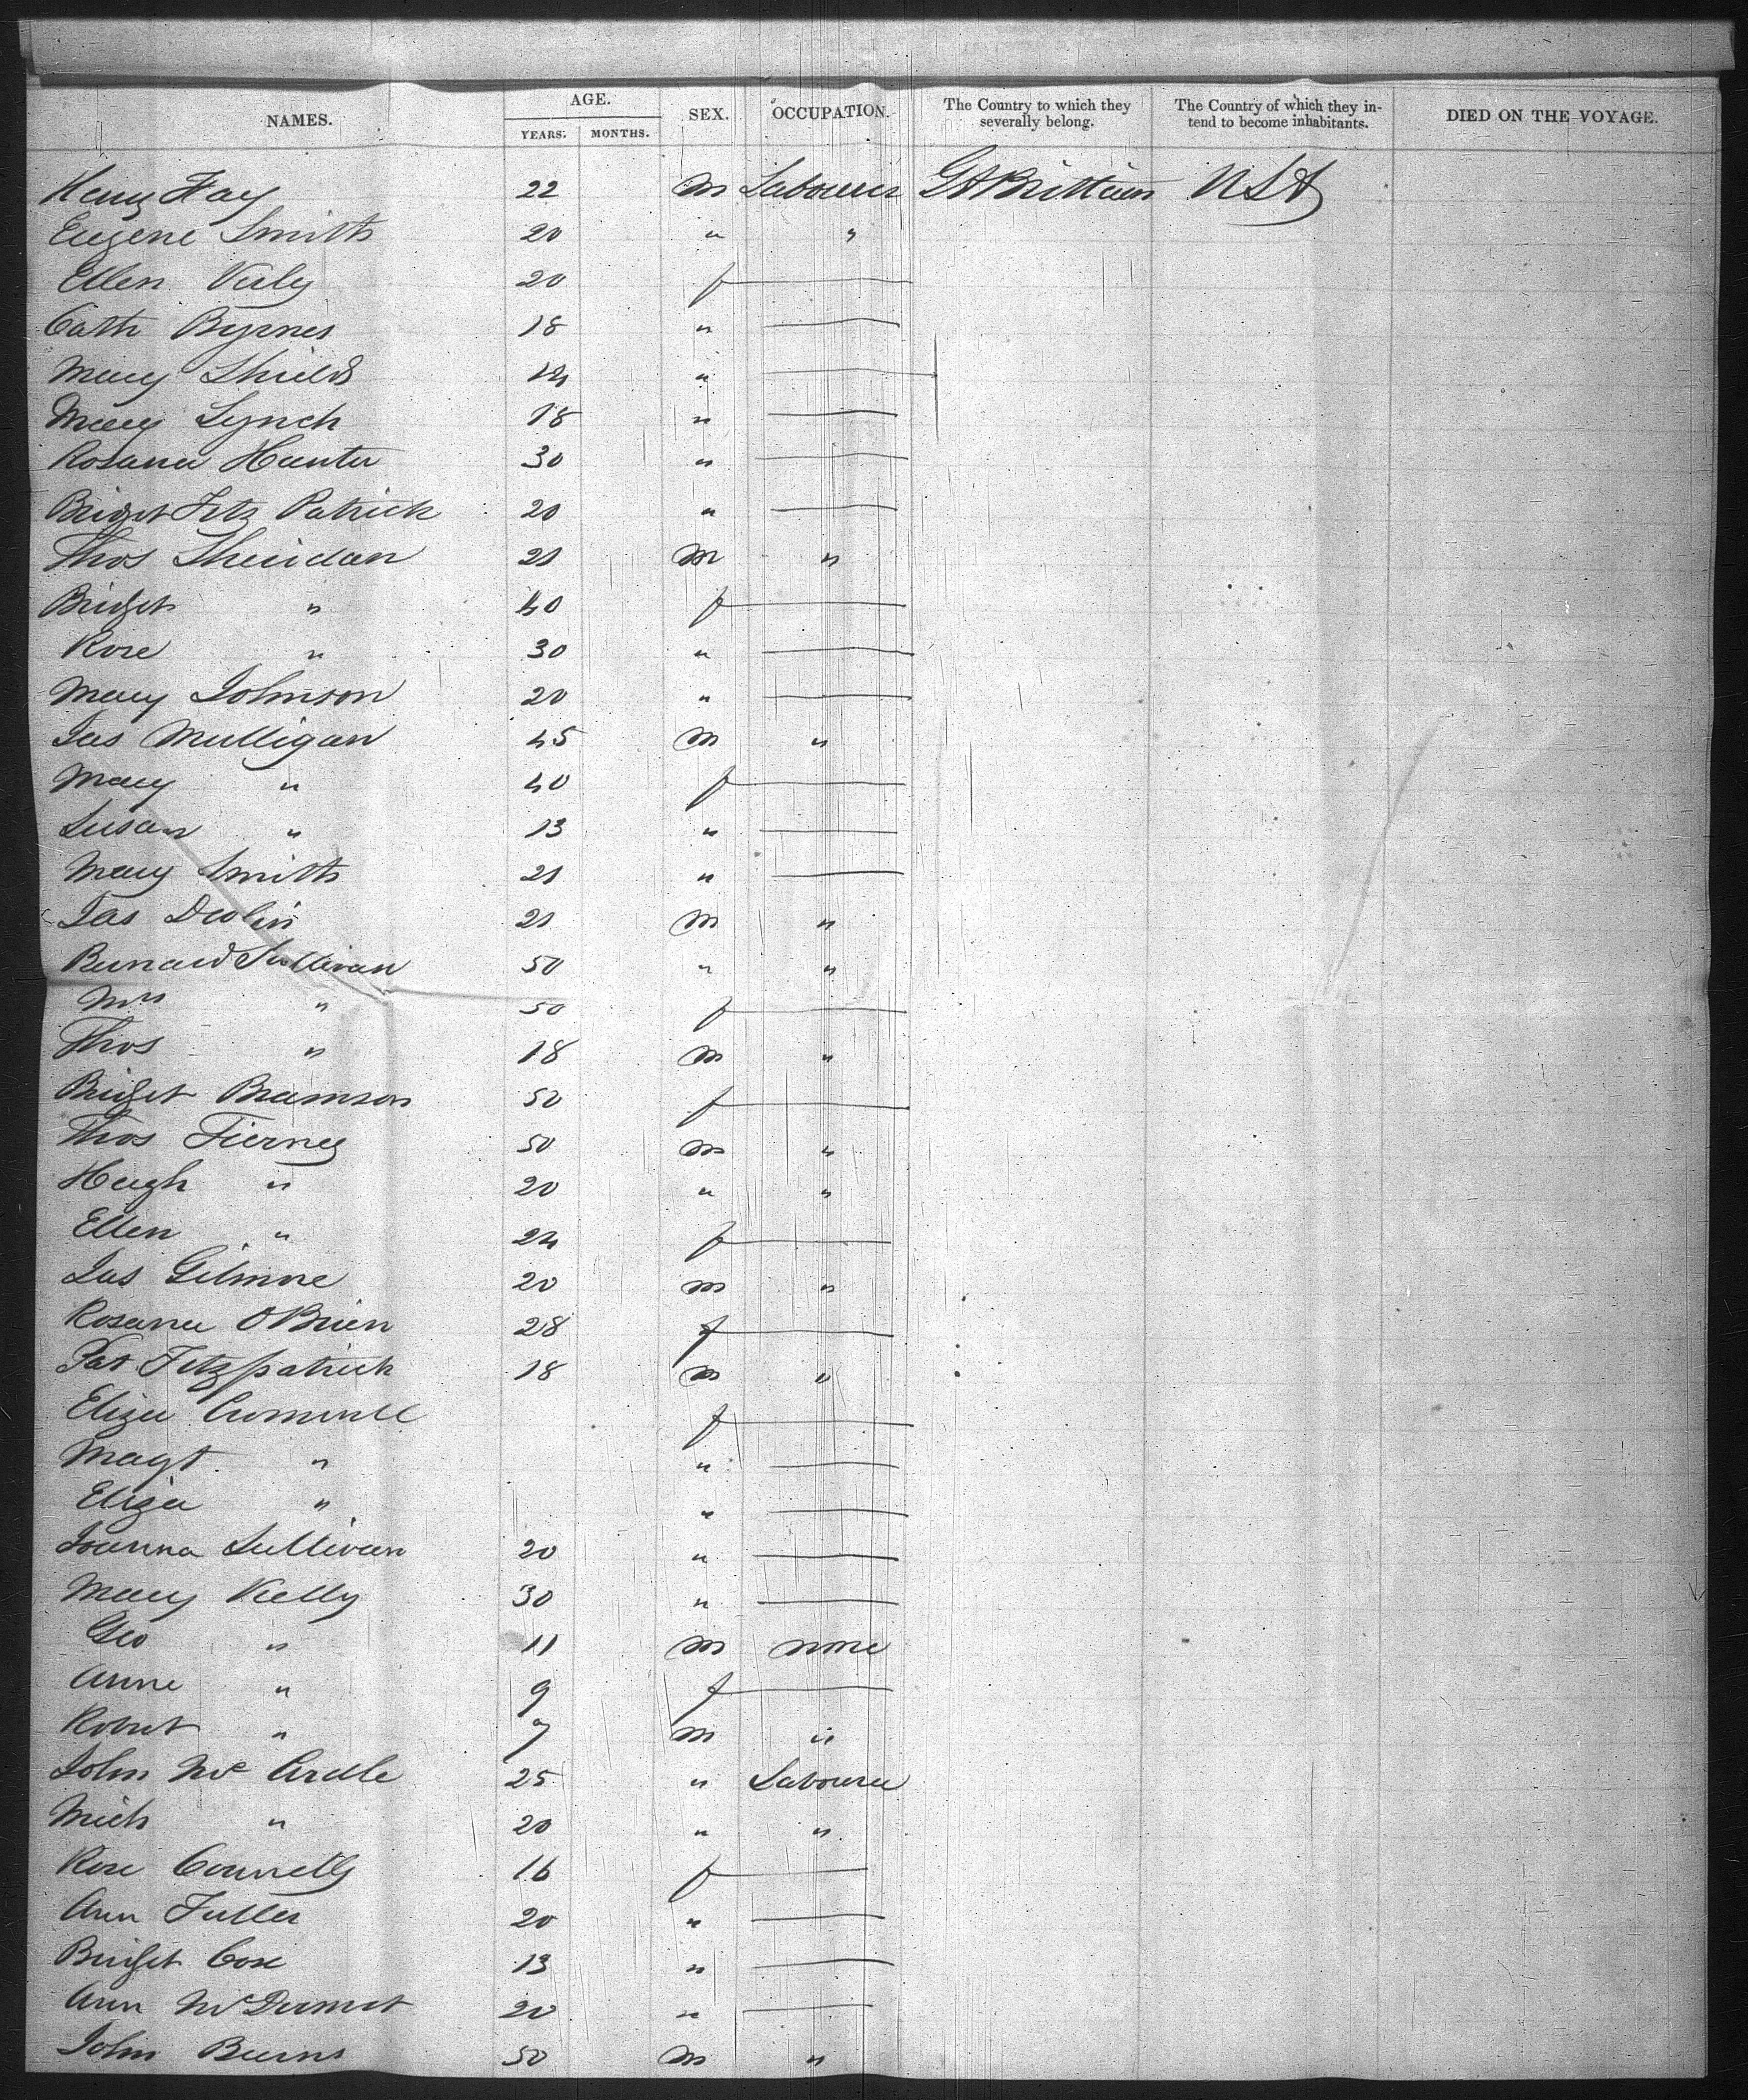 NAMES. AGE. YEARS. MONTHS. SEX. OCCUPATION. The Country to which they severally belong. The Country of which they intend to become inhabitants. DIED ON THE VOYAGE.
Henry Fay 22 m Labourer Gt Brittain USA
Eugene Smith 20 " "
Ellen Kiely 20 f —
Cath Byrnes 18 " —
Mary Shields 14 " —
Mary Lynch 18 " —
Rosana Hunter 30 " —
Bridget Fitz Patrick 20 " —
Thos Sheridan 21 m "
Bridget " 40 f —
Rose " 30 " —
Mary Johnson 20 " —
Jas Mulligan 45 m "
Mary " 40 f —
Susan " 13 " —
Mary Smith 21 " —
Jas Devlin 21 m "
Bernard Sullivan 50 " "
Mrs " 50 f —
Thos " 18 m "
Bridget Bramson 50 f —
Thos Tierney 50 m "
Hugh " 20 " "
Ellen " 24 f —
Jas Gilmore 20 m "
Rosanna O'Brien 28 f —
Pat Fitzpatrick 18 m "
Eliza f —
Magt " " —
Eliza " " —
Joanna Sullivan 20 " —
Mary Kelly 30 " —
Geo " 11 m none
Anne " 9 f —
Robert " 7 m "
John McArdle 25 " Labourer
Mich " 20 " "
Rose Connelly 16 f —
Ann Fuller 20 " —
Bridget Cox 13 " —
Ann McDermot 20 " —
John Burns 50 m "